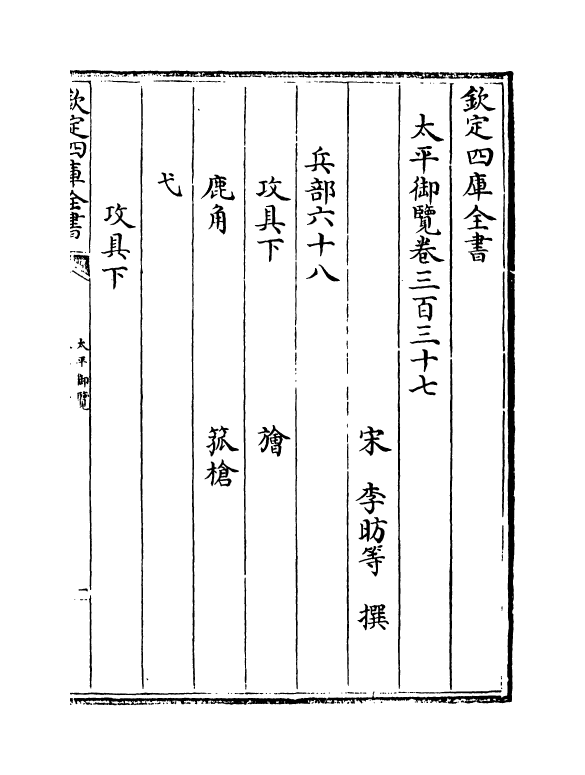 欽定四庫全書
太平御覽卷三百三十七
宋 李昉等 撰
兵部六十八
攻具下 旝
鹿角 菰槍
弋
攻具下
欽定四庫全書
太平御覽
一